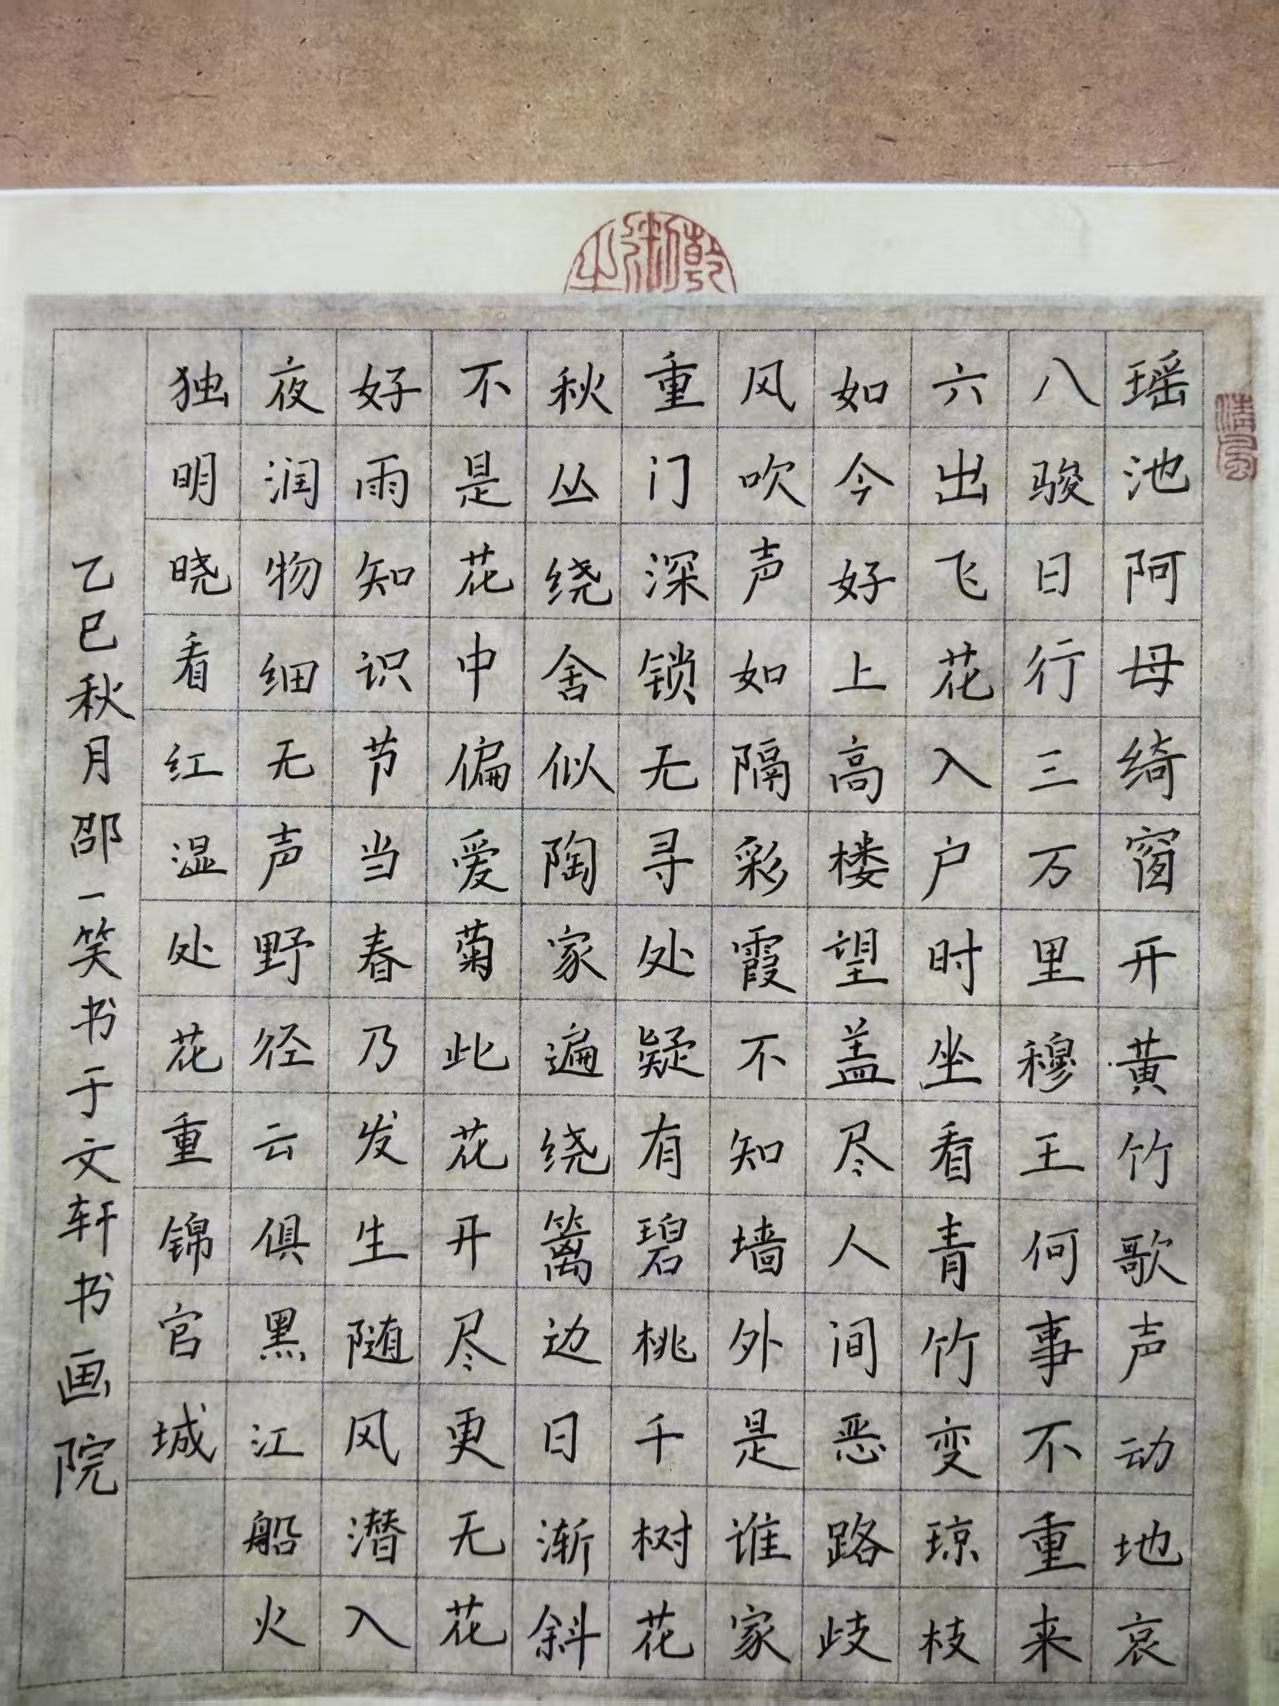 瑶池阿母绮窗开黄竹歌声动地哀
八骏日行三万里穆王何事不重来
六出飞花入户时坐看青竹变琼枝
如今好上高楼望盖尽人间恶路歧
风吹声如隔彩霞不知墙外是谁家
重门深锁无寻处疑有碧桃千树花
秋丛绕舍似陶家遍绕篱边日渐斜
不是花中偏爱菊此花开尽更无花
好雨知识节当春乃发生随风潜入
夜润物细无声野径云俱黑江船火
独明晓看红湿处花重锦官城
乙巳秋月邵一笑书于文轩书画院